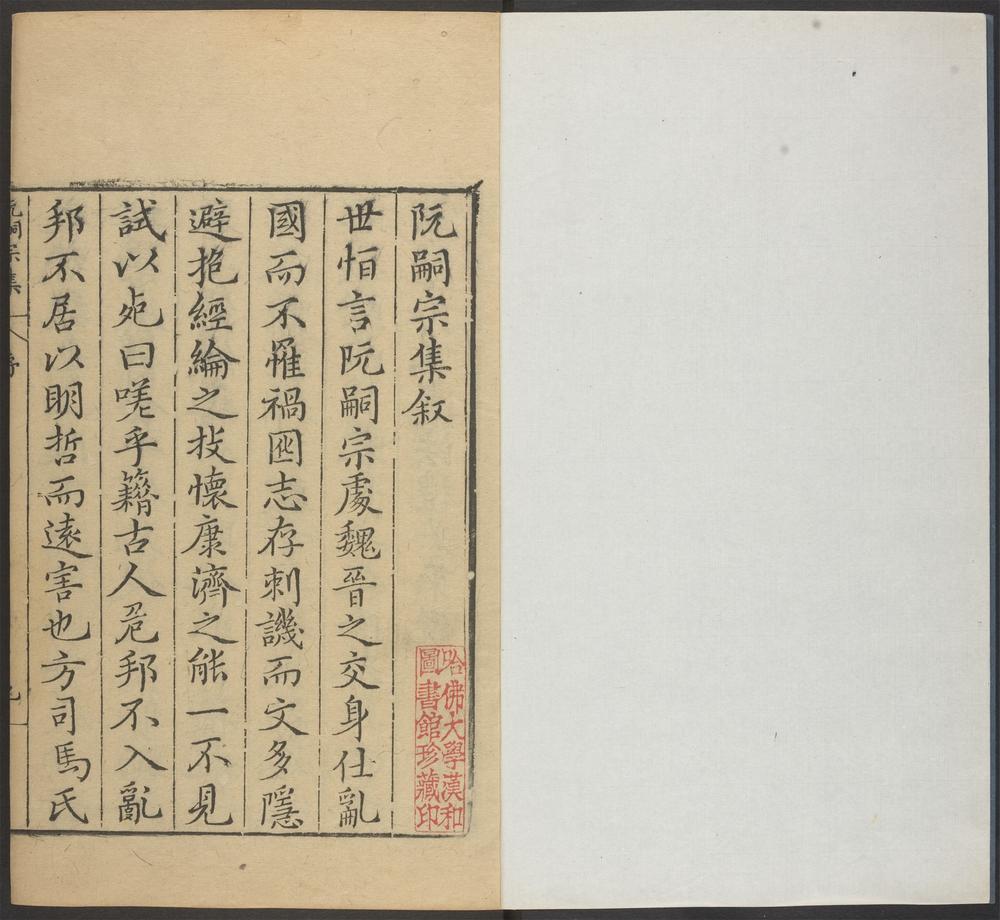 阮嗣宗集叙
世恒言阮嗣宗處魏晉之交身仕亂
國而不罹禍囮志存刺譏而文多隱
避抱經綸之技懷康濟之能一不見
試以死曰嘆乎籍古人危邦不入亂
邦不居以明哲而遠害也方司馬氏
阮嗣宗集
序
哈佛大學漢和
圖書館珍藏印